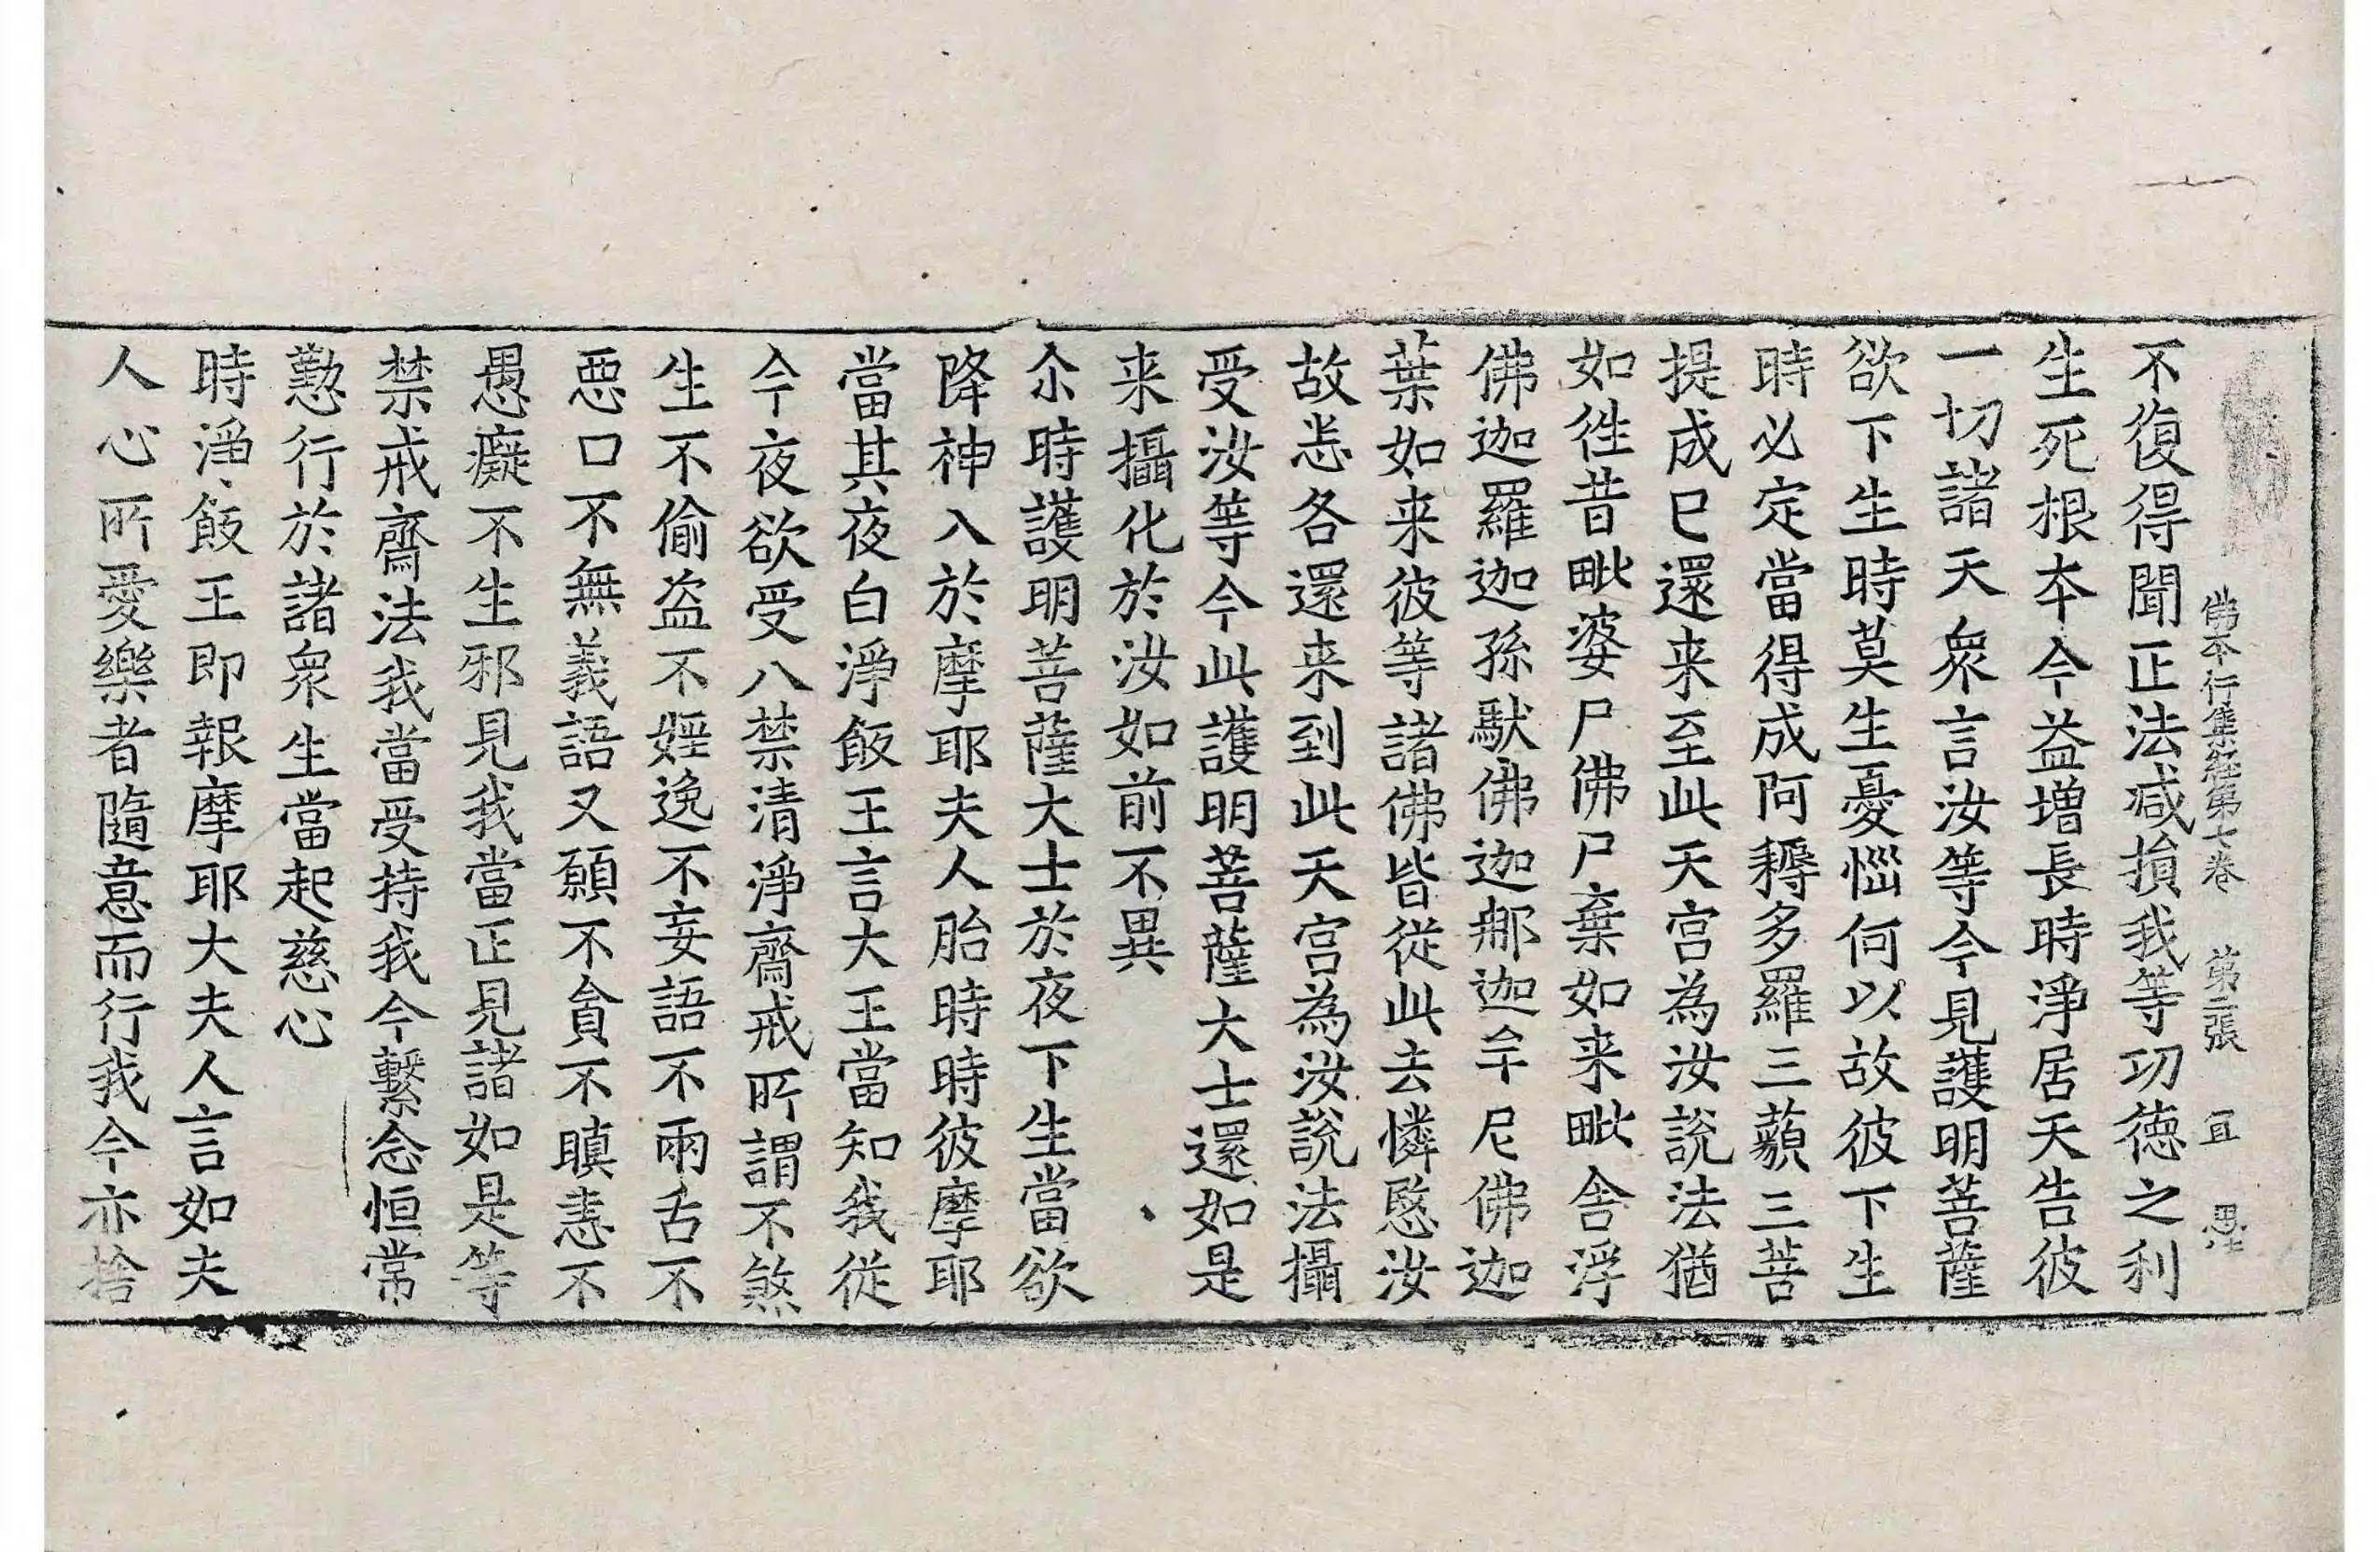 佛本行集經第七卷　第二張　冝
不復得聞正法减損我等功德之利
生死根本今益增長時淨居天告彼
一切諸天眾言汝等今見護明菩薩
欲下生時莫生憂惱何以故彼下生
時必定當得成阿耨多羅三藐三菩
提成已還来至此天宫為汝說法猶
如徃昔毗婆尸佛尸棄如来毗舍浮
佛迦羅迦孫馱佛迦那迦牟尼佛迦
葉如来彼等諸佛皆從此去憐愍汝
故悉各還来到此天宫為汝說法攝
受汝等今此護明菩薩大士還如是
来攝化於汝如前不異
尒時護明菩薩大士於夜下生當欲
降神入於摩耶夫人胎時時彼摩耶
當其夜白淨飯王言大王當知我從
今夜欲受八禁清淨齋戒所謂不煞
生不偷盗不婬逸不妄語不兩舌不
惡口不無義語又願不貪不瞋恚不
愚癡不生邪見我當正見諸如是等
禁戒齋法我當受持我今繫念恒常
懃行於諸眾生當起慈心
時淨飯王即報摩耶大夫人言如夫
人心所愛樂者隨意而行我今亦捨